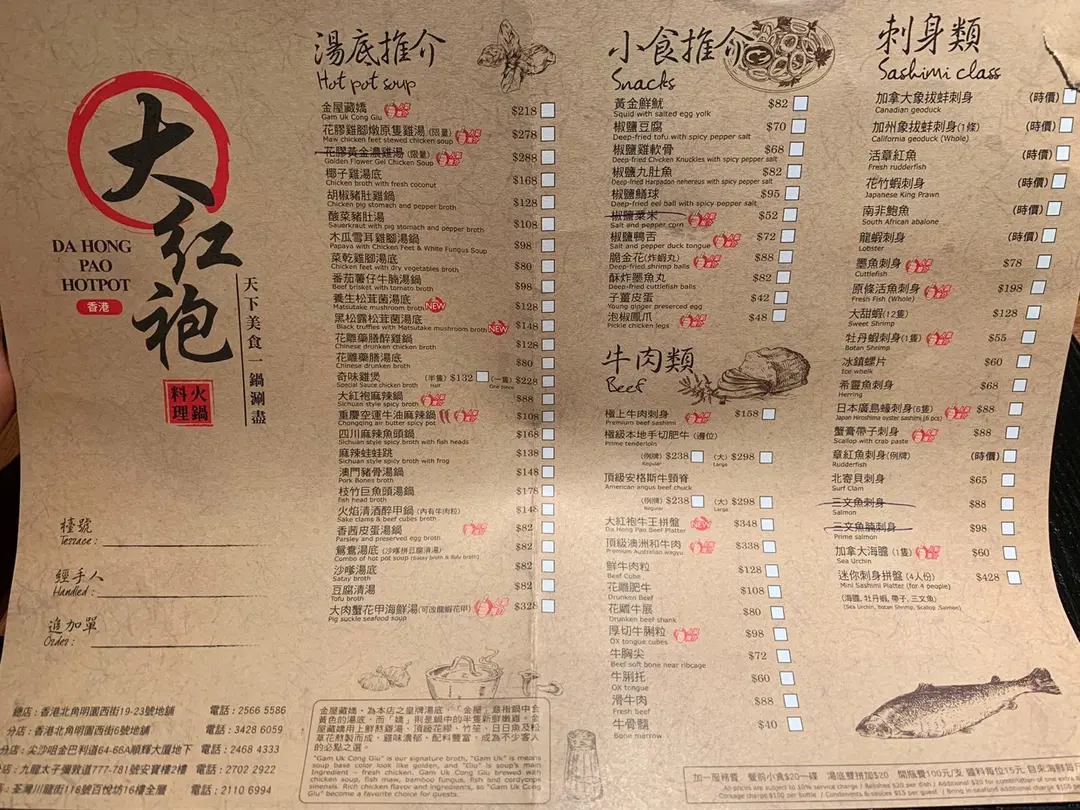 大紅袍
DA HONG
PAO
HOTPOT
香港
天下美食一鍋涮盡
火鍋
料理
檯號
Terrace :
經手人
Handled :
追加單
Order :
總店 : 香港北角明園西街19-23號地舖 電話 : 2566 5586
分店 : 香港北角明園西街6號地舖 電話 : 3428 6059
分店 : 尖沙咀金巴利道64-66A順輝大廈地下 電話 : 2468 4333
店 : 九龍太子彌敦道777-781號安寶樓2樓 電話 : 2702 2922
荃灣川龍街118號百悅坊16樓全層 電話 : 2110 6994
湯底推介
Hot pot soup
金屋藏嬌 $218
Gam Uk Cong Giu
花膠雞腳燉原隻雞湯 (限量) $278
Maw chicken feet stewed chicken soup
花膠黃金濃雞湯 (限量) $288
Golden Flower Gel Chicken Soup
椰子雞湯底 $168
Chicken broth with fresh coconut
胡椒豬肚雞鍋 $128
Chicken pig stomach and pepper broth
酸菜豬肚湯 $108
Sauerkraut with pig stomach and pepper broth
木瓜雪耳雞腳湯鍋 $98
Papaya with Chicken Feet & White Fungus Soup
菜乾雞腳湯底 $80
Chicken feet with dry vegetables broth
番茄薯仔牛腩湯鍋 $98
Beef brisket with tomato broth
養生松茸菌湯底 NEW $128
Matsutake mushroom broth
黑松露松茸菌湯底 NEW $148
Black truffles with Matsutake mushroom broth
花雕藥膳醉雞鍋 $128
Chinese drunken chicken broth
花雕藥膳湯底 $80
Chinese drunken broth
奇味雞煲 (半隻) $132 (一隻) $228
Special Sauce chicken broth Half One piece
大紅袍麻辣鍋 $88
Sichuan style spicy broth
重慶空運牛油麻辣鍋 $108
Chongqing air butter spicy pot
四川麻辣魚頭鍋 $168
Sichuan style spicy broth with fish heads
麻辣蛙蛙跳 $138
Sichuan style spicy broth with frog
澳門豬骨湯鍋 $148
Pork Bones broth
枝竹巨魚頭湯鍋 $178
Fish head broth
火焰清酒醉甲鍋 (內有牛肉粒) $148
Sake clams & beef cubes broth
香茜皮蛋湯鍋 $82
Parsley and preserved egg broth
鴛鴦湯底 (沙嗲拼豆腐清湯) $82
Combo of hot pot soup (Satay broth & Tofu broth)
沙嗲湯底 $82
Satay broth
豆腐清湯 $82
Tofu broth
大肉蟹花甲海鮮湯 (可改龍蝦花甲) $328
Pig suckle seafood soup
金屋藏嬌，為本店之皇牌湯底，「金屋」意指鍋中金
黃色的湯底，而「嬌」則是鍋中的半隻新鮮嫩雞。金
屋藏嬌用上鮮熬雞湯、頂級花膠、竹笙、日月魚及松
草花熬製而成，雞味濃郁，配料豐富，成為不少客人
的必點之選。
"Gam Uk Cong Giu" is our signature broth, "Gam Uk" is means
soup base color look like golden, and "Giu" is soup's main
Ingredient - fresh chicken. Gam Uk Cong Giu brewed with
chicken soup, fish maw, bamboo fungus, fish and cordyceps
sinensis. Rich chicken flavor and ingredients, so "Gam Uk Cong
Giu" become a favorite choice for guests.
小食推介
Snacks
黃金鮮魷 $82
Squid with salted egg yolk
椒鹽豆腐 $70
Deep-fried tofu with spicy pepper salt
椒鹽雞軟骨 $68
Deep-fried Chicken Knuckles with spicy pepper salt
椒鹽九肚魚 $82
Deep-fried Harpadon nehereus with spicy pepper salt
椒鹽鱔球 $95
Deep-fried eel ball with spicy pepper salt
椒鹽粟米 $52
Salt and pepper corn
椒鹽鴨舌 $72
Salt and pepper duck tongue
脆金花(炸蝦丸) $88
Deep-fried shrimp balls
酥炸墨魚丸 $82
Deep-fried cuttlefish balls
子薑皮蛋 $42
Young ginger preserved egg
泡椒鳳爪 $48
Pickle chicken legs
牛肉類
Beef
極上牛肉刺身 $158
Premium beef sashimi
極級本地手切肥牛 (邊位)
Prime tenderloin
(例牌) $238 (大) $298
Regular Large
頂級安格斯牛頸脊
American angus beef chuck
(例牌) $238 (大) $298
Regular Large
大紅袍牛王拼盤 $348
Da Hong Pao Beef Platter
頂級澳洲和牛肉 $338
Premium Australian wagyu
鮮牛肉粒 $128
Beef Cube
花雕肥牛 $108
Drunken Beef
花雕牛展 $80
Drunken beef shank
厚切牛脷粒 $98
OX tongue cubes
牛胸尖 $72
Beef soft bone near ribcage
牛脷托 $60
OX tongue
滑牛肉 $88
Fresh beef
牛骨髓 $40
Bone marrow
刺身類
Sashimi class
加拿大象拔蚌刺身 (時價)
Canadian geoduck
加州象拔蚌刺身(1條) (時價)
California geoduck (Whole)
活章紅魚 (時價)
Fresh rudderfish
花竹蝦刺身 (時價)
Japanese King Prawn
南非鮑魚 (時價)
South African abalone
龍蝦刺身 (時價)
Lobster
墨魚刺身 $78
Cuttlefish
原條活魚刺身 $198
Fresh Fish (Whole)
大甜蝦(12隻) $128
Sweet Shrimp
牡丹蝦刺身(1隻) $55
Botan Shrimp
冰鎮螺片 $60
Ice whelk
希靈魚刺身 $68
Herring
日本廣島蠔刺身(6隻) $88
Japan Hiroshima oyster sashimi (6 pcs)
蟹膏帶子刺身 $88
Scallop with crab paste
章紅魚刺身(例牌) (時價)
Rudderfish
北寄貝刺身 $65
Surf Clam
三文魚刺身 $88
Salmon
三文魚腩刺身 $98
Prime salmon
加拿大海膽 (1隻) $60
Sea Urchin
迷你刺身拼盤 (4人份) $428
Mini Sashimi Platter (for 4 people)
(海膽, 牡丹蝦, 帶子, 三文魚)
(Sea Urchin, botan Shrimp, Scallop ,Salmon)
加一服務費 餐前小食$20一碟 湯底雙拼加$20 開瓶費100元/支 醬料每位15元
All prices are subject to 10% service charge / Relishes $20 per dish / Additional $20 for combination of
Corkage charge $100 per bottle / Condiments & sauces $15 per guest /